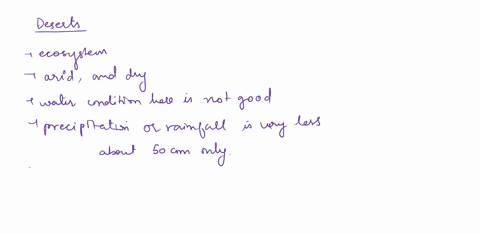 Deserts
→ ecosystem
→ arid, and dry
→ water condition here is not good
→ precipitation or rainfall is very less
about 50 cm only.